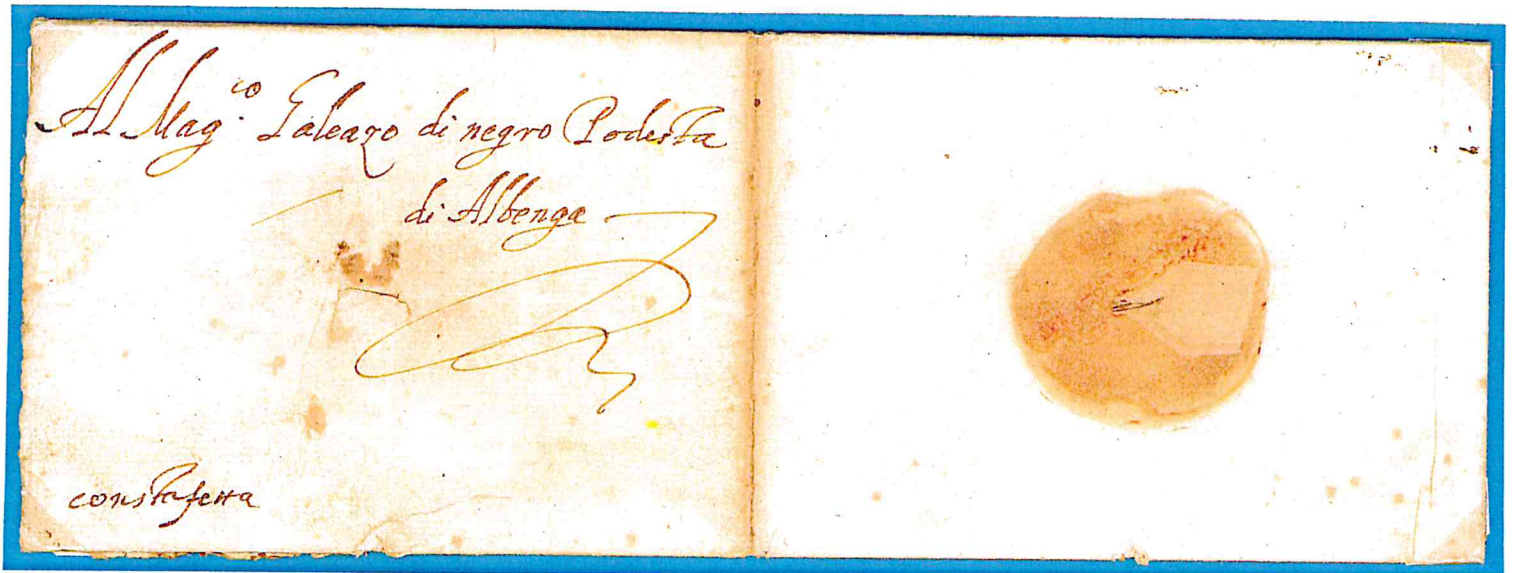 Al Mag.co Galeazo di negro Podesta
di Albenga
constafetta